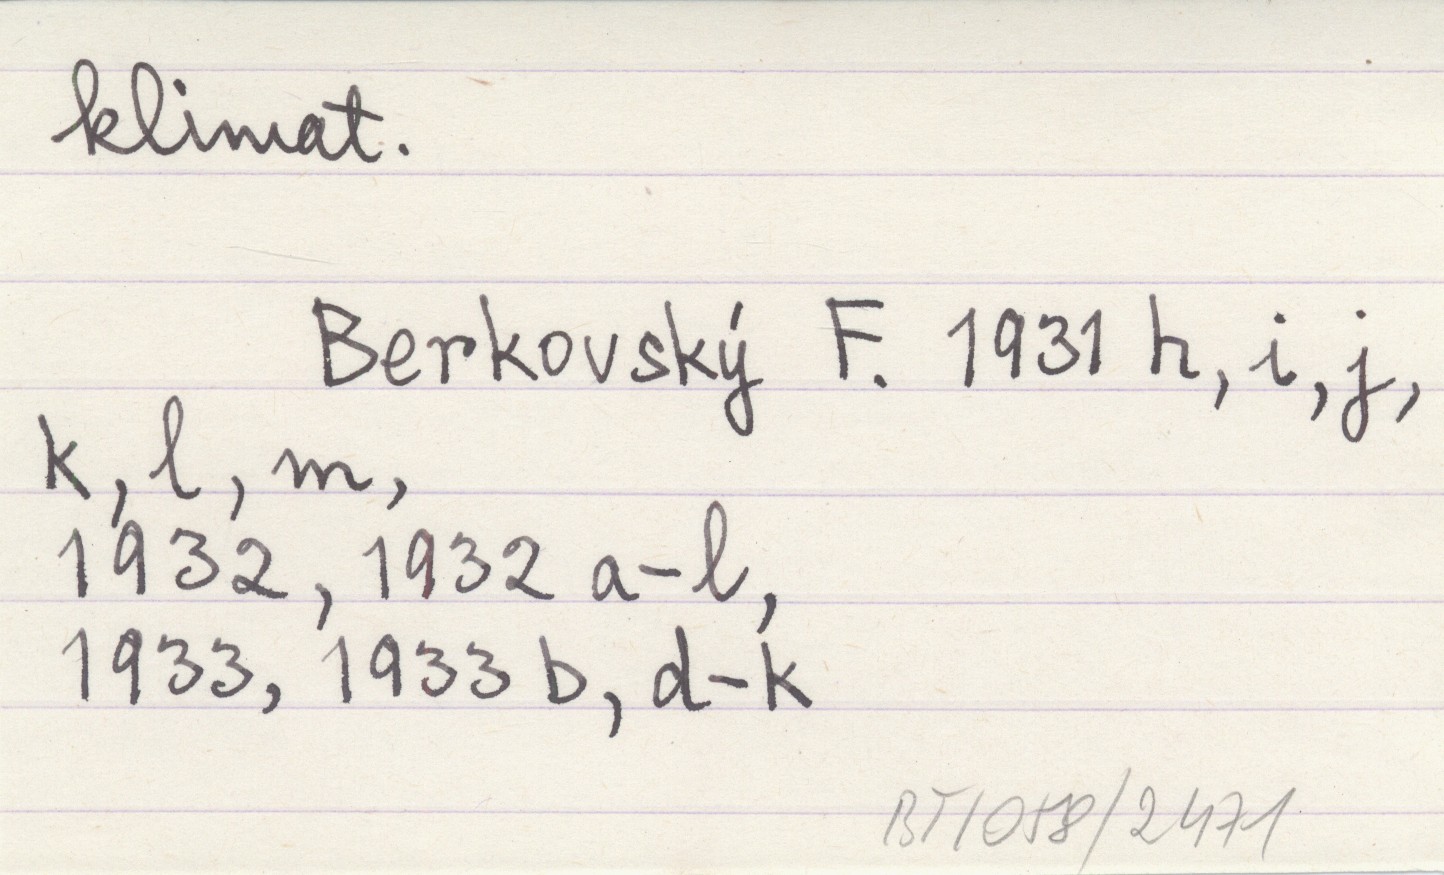 klimat.
Berkovský F. 1931 h, i, j,
k, l, m,
1932, 1932 a-l,
1933, 1933 b, d-k
BT/058/2471